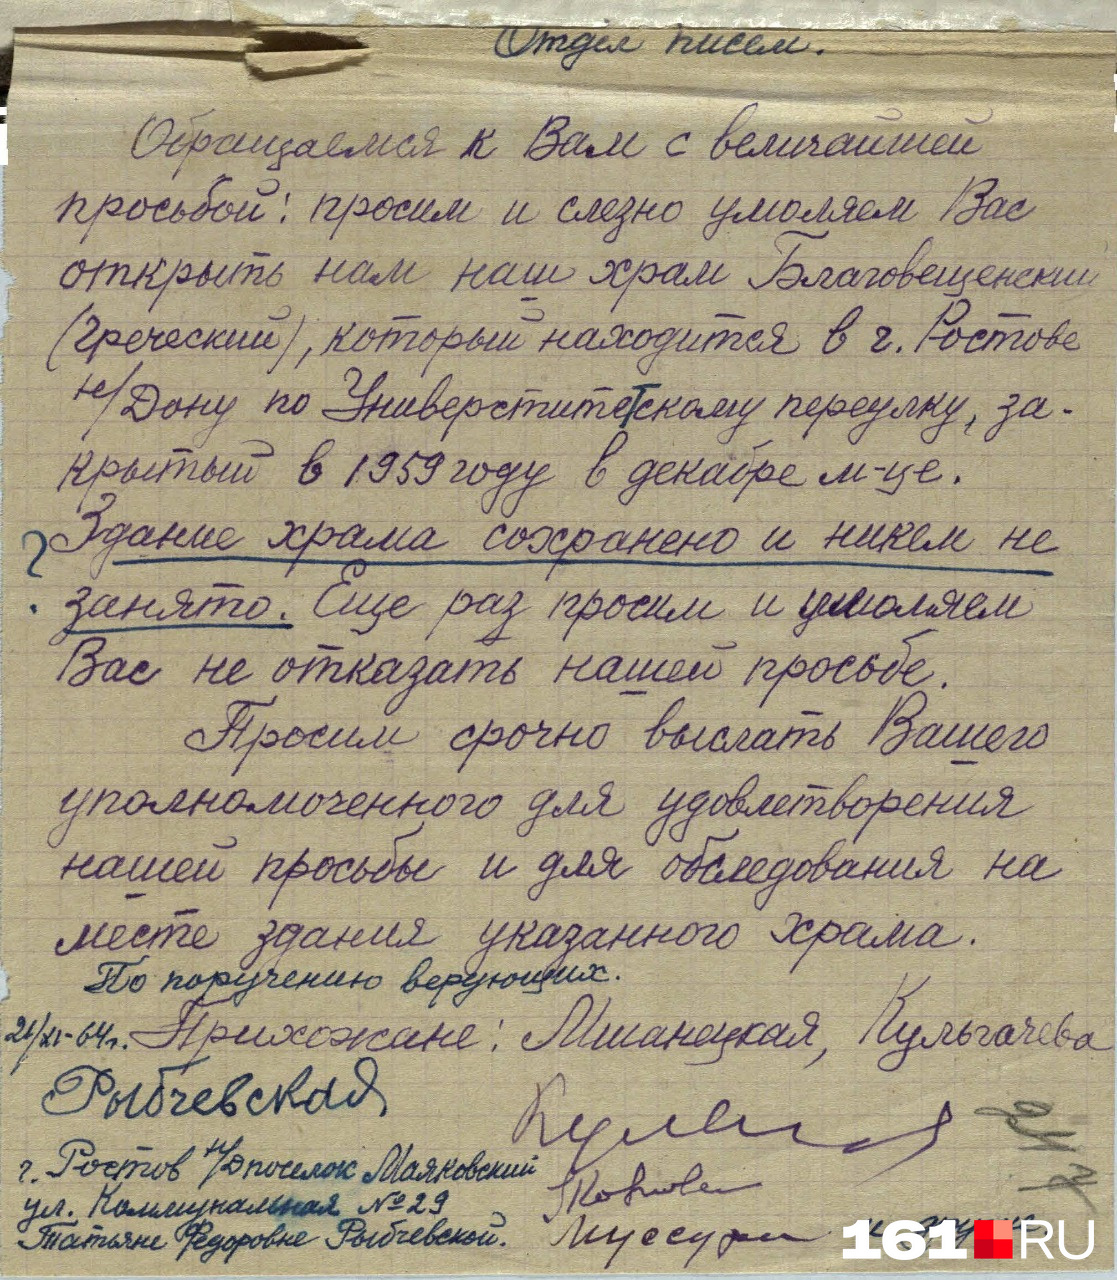 Отдел писем.
Обращаемся к Вам с величайшей
просьбой: просим и слезно умоляем Вас
открыть нам наш храм Благовещенский
(греческий), который находится в г. Ростове
н/Дону по Универститетскому переулку, за-
крытый в 1959 году в декабре м-це.
? Здание храма сохранено и никем не
занято. Еще раз просим и умоляем
Вас не отказать нашей просьбе.
Просим срочно выслать Вашего
уполномоченного для удовлетворения
нашей просьбы и для обследования на
месте здания указанного храма.
По поручению верующих.
21/XI-64г. Прихожане: Мшанецкая, Кульгачева
Рыбчевская
г. Ростов н/Д поселок Маяковский
ул. Коммунальная №29
Татьяне Федоровне Рыбчевской.
Муссури и другие
161.RU